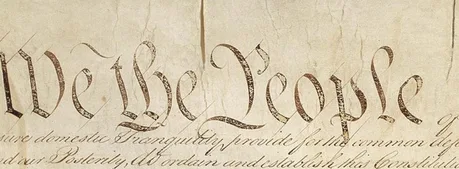 We the People
sure domestic Tranquility, provide for the common def
d our Posterity, do ordain and establish this Constitutio